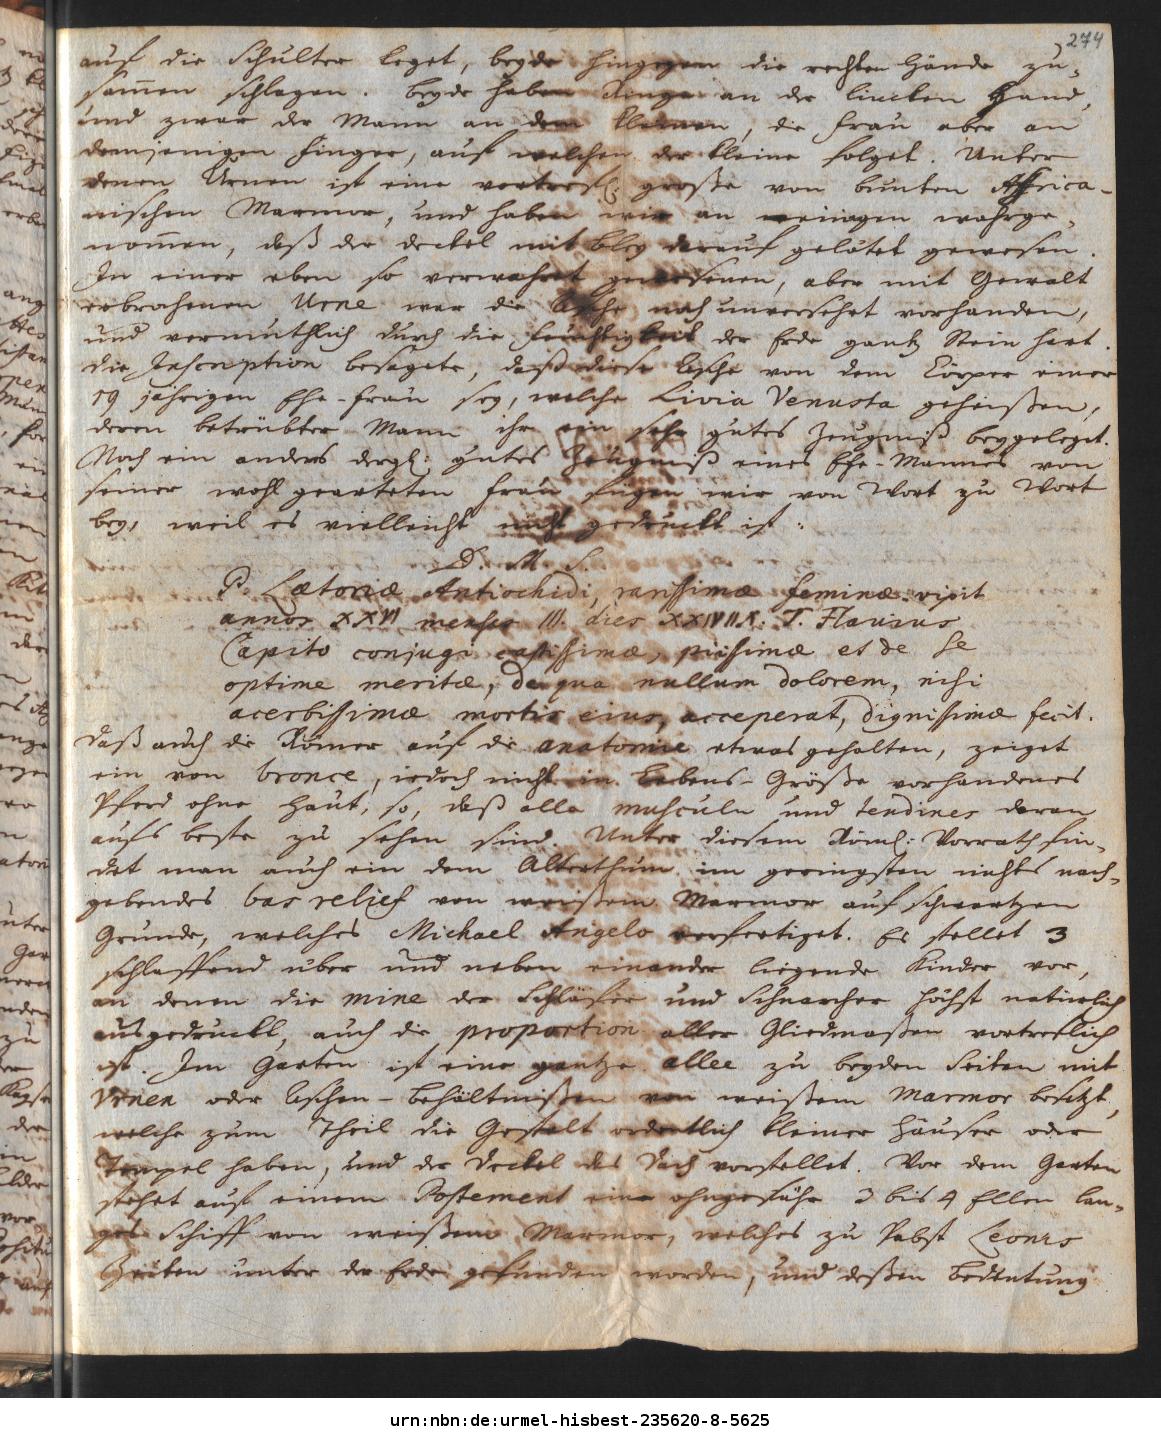 274
auf die Schulter leget, beyde hingegen die rechten Hände zu-
sam̅en schlagen. Beyde haben Ringe an der lincken Hand,
und zwar der Mann an dem kleinen, die Frau aber an
demjenigen Finger, auf welchen der kleine folget. Unter
denen Urnen ist eine vortrefl: große von bunten Africa-
nischen Marmor, und haben wir an einigen wahrge-
nom̅en, daß der deckel mit bley darauf gelötet gewesen.
In einer eben so verwahrt gewesenen, aber mit Gewalt
erbrochenen Urne war die Asche noch unversehrt vorhanden,
und vermuthlich durch die feuchtigkeit der Erde gantz Stein hart.
Die Inscription besagete, daß diese Asche von dem Cörper einer
19 jährigen Ehe-Frau sey, welche Livia Venusta geheißen,
deren betrübter Mann ihr ein sehr gutes Zeugniß beygeleget.
Noch ein anders dergl: gutes Zeugniß eines Ehe-Mannes von
seiner wohl gearteten Frau fügen wir von Wort zu Wort
bey, weil es vielleicht nicht gedruckt ist:
D. M. S.
P. Lætoriæ Antiochidi, rarissimæ feminæ. vixit
annos XXVI menses III. dies T. Flavius
Capito conjugi castissimæ, piissimæ et de se
optime meritæ, de qua nullum dolorem, nisi
acerbissimæ mortis eius, acceperat, dignissimæ fecit.
Daß auch die Römer auf die anatomie etwas gehalten, zeiget
ein von bronce, iedoch nicht in Lebens-Größe vorhandenes
Pferd ohne Haut, so, daß alle musculn und tendines daran
aufs beste zu sehen sind. Unter diesem Röml: Vorrath fin-
det man auch ein dem Alterthum im geringsten nichts nach-
gebendes bas relief von weißem Marmor auf schwartzen
Grunde, welches Michael Angelo verfertiget. Es stellet 3
schlaffend über und neben einander liegende Kinder vor,
an denen die mine der Schläfer und Schnarcher höchst natürlich
ausgedruckt, auch die proportion aller Gliedmaßen vortreflich
ist. Im Garten ist eine gantze allee zu beyden Seiten mit
Urnen oder Aschen-Behältnißen von weißem Marmor besetzt,
welche zum Theil die Gestalt ordentlich kleiner Häuser oder
Tempel haben, und der Deckel das Dach vorstellet. Vor dem Garten
stehet auf einem Postement eine ohngefähr 3 bis 4 Ellen lan-
ges Schiff von weißem Marmor, welches zu Pabst Leonis
Zeiten unter der Erde gefunden worden, und deßen Bedeutung
urn:nbn:de:urmel-hisbest-235620-8-5625